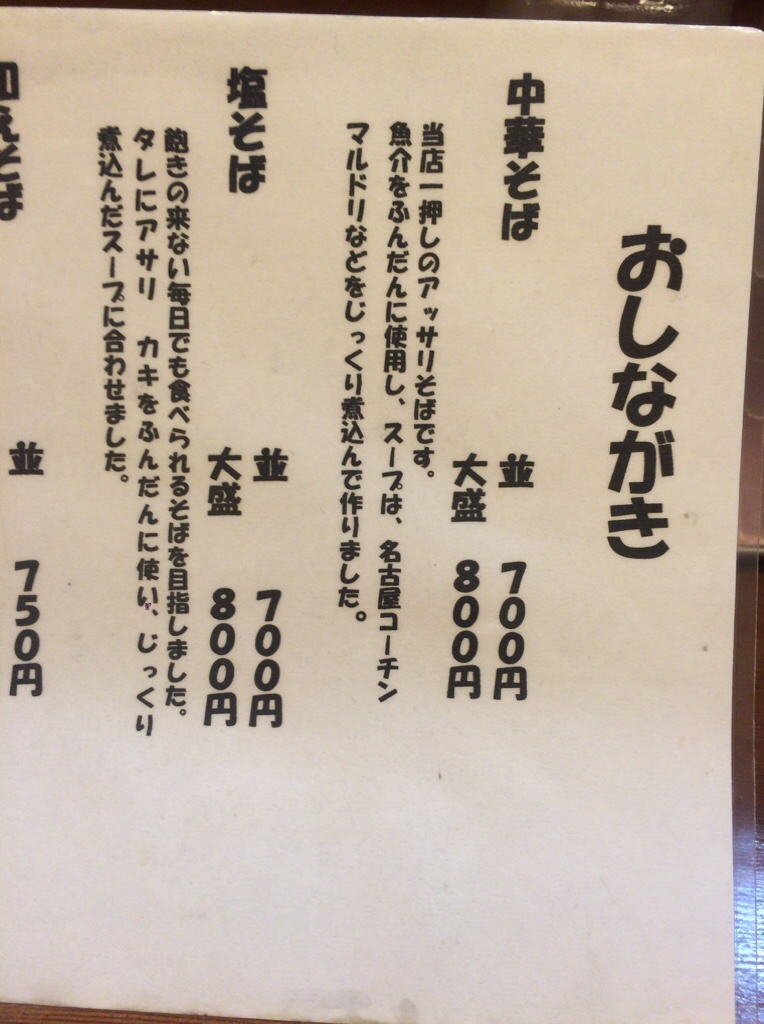 おしながき
中華そば
並 700円
大盛 800円
当店一押しのアッサリそばです。
魚介をふんだんに使用し、スープは、名古屋コーチン
マルドリなどをじっくり煮込んで作りました。
塩そば
並 700円
大盛 800円
飽きの来ない毎日でも食べられるそばを目指しました。
タレにアサリ カキをふんだんに使い、じっくり
煮込んだスープに合わせました。
えそば
並 750円